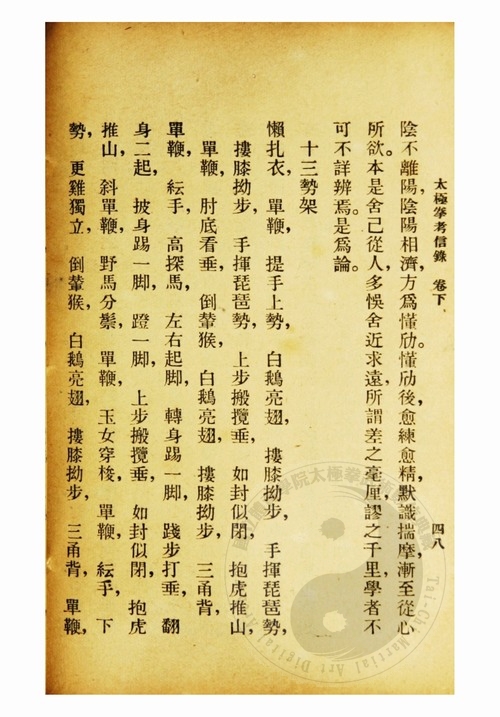 太極拳考信錄 卷下 四八
陰不離陽,陰陽相濟,方為懂劤。懂劤後,愈練愈精,默識揣摩,漸至從心
所欲。本是舍己從人,多悞舍近求遠,所謂差之毫厘,謬之千里,學者不
可不詳辨焉。是為論。
十三勢架
懶扎衣, 單鞭, 提手上勢, 白鵝亮翅, 摟膝拗步, 手揮琵琶勢,
摟膝拗步, 手揮琵琶勢, 上步搬攬垂, 如封似閉, 抱虎推山,
單鞭, 肘底看垂, 倒輦猴, 白鵝亮翅, 摟膝拗步, 三甬背,
單鞭, 紜手, 高探馬, 左右起脚, 轉身踢一脚, 踐步打垂, 翻
身二起, 披身踢一脚, 蹬一脚, 上步搬攬垂, 如封似閉, 抱虎
推山, 斜單鞭, 野馬分鬃, 單鞭, 玉女穿梭, 單鞭, 紜手, 下
勢, 更雞獨立, 倒輦猴, 白鵝亮翅, 摟膝拗步, 三甬背, 單鞭,
學院太極拳
Tai-Chi Martial Art Digital